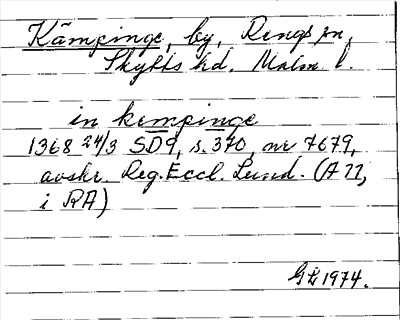 Kämpinge, by, Rengs sn,
Skytts hd. Malm. l.
in kempinge
1368 24/3 SD9, s. 370, nr 7679,
avskr Reg. Eccl. Lund. (A 22,
i RA)
GL 1974.